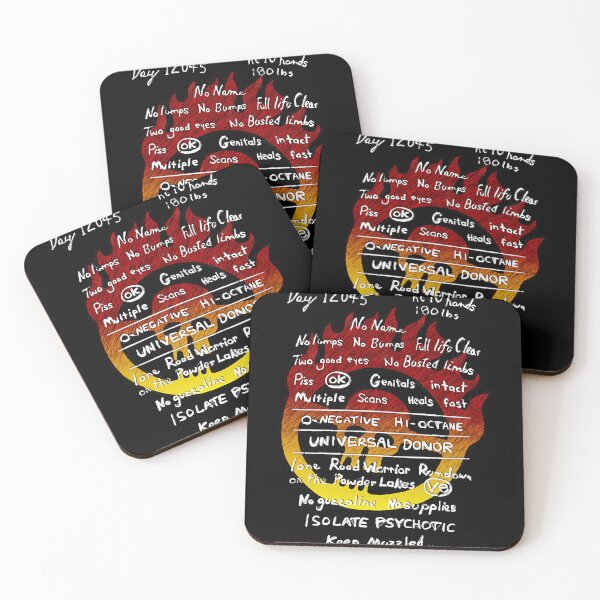 Day 12045 Ht 10 hands
180 lbs
No Name
No lumps No Bumps Full life Clear
Two good eyes No Busted limbs
Piss OK Genitals intact
Multiple Scans Heals fast
HI-OCTANE
DONOR
Day 12045 Ht 10 hands
180 lbs
No Name
No lumps No Bumps Full life Clear
Two good eyes No Busted limbs
Piss OK Genitals intact
Multiple Scans Heals fast
O-NEGATIVE HI-OCTANE
UNIVERSAL DONOR
Day 12045 Ht 10 hands
180 lbs
No Name
No lumps No Bumps Full life Clear
Two good eyes No Busted limbs
Piss OK Genitals intact
Multiple Scans Heals fast
O-NEGATIVE HI-OCTANE
UNIVERSAL DONOR
lone Road Warrior
on the Powder Lakes
No guzzoline No
ISOLATE
Keep
Day 12045 Ht 10 hands
180 lbs
No Name
No lumps No Bumps Full life Clear
Two good eyes No Busted limbs
Piss OK Genitals intact
Multiple Scans Heals fast
O-NEGATIVE HI-OCTANE
UNIVERSAL DONOR
lone Road Warrior Rundown
on the Powder Lakes V8
No guzzoline No supplies
ISOLATE PSYCHOTIC
Keep Muzzled...